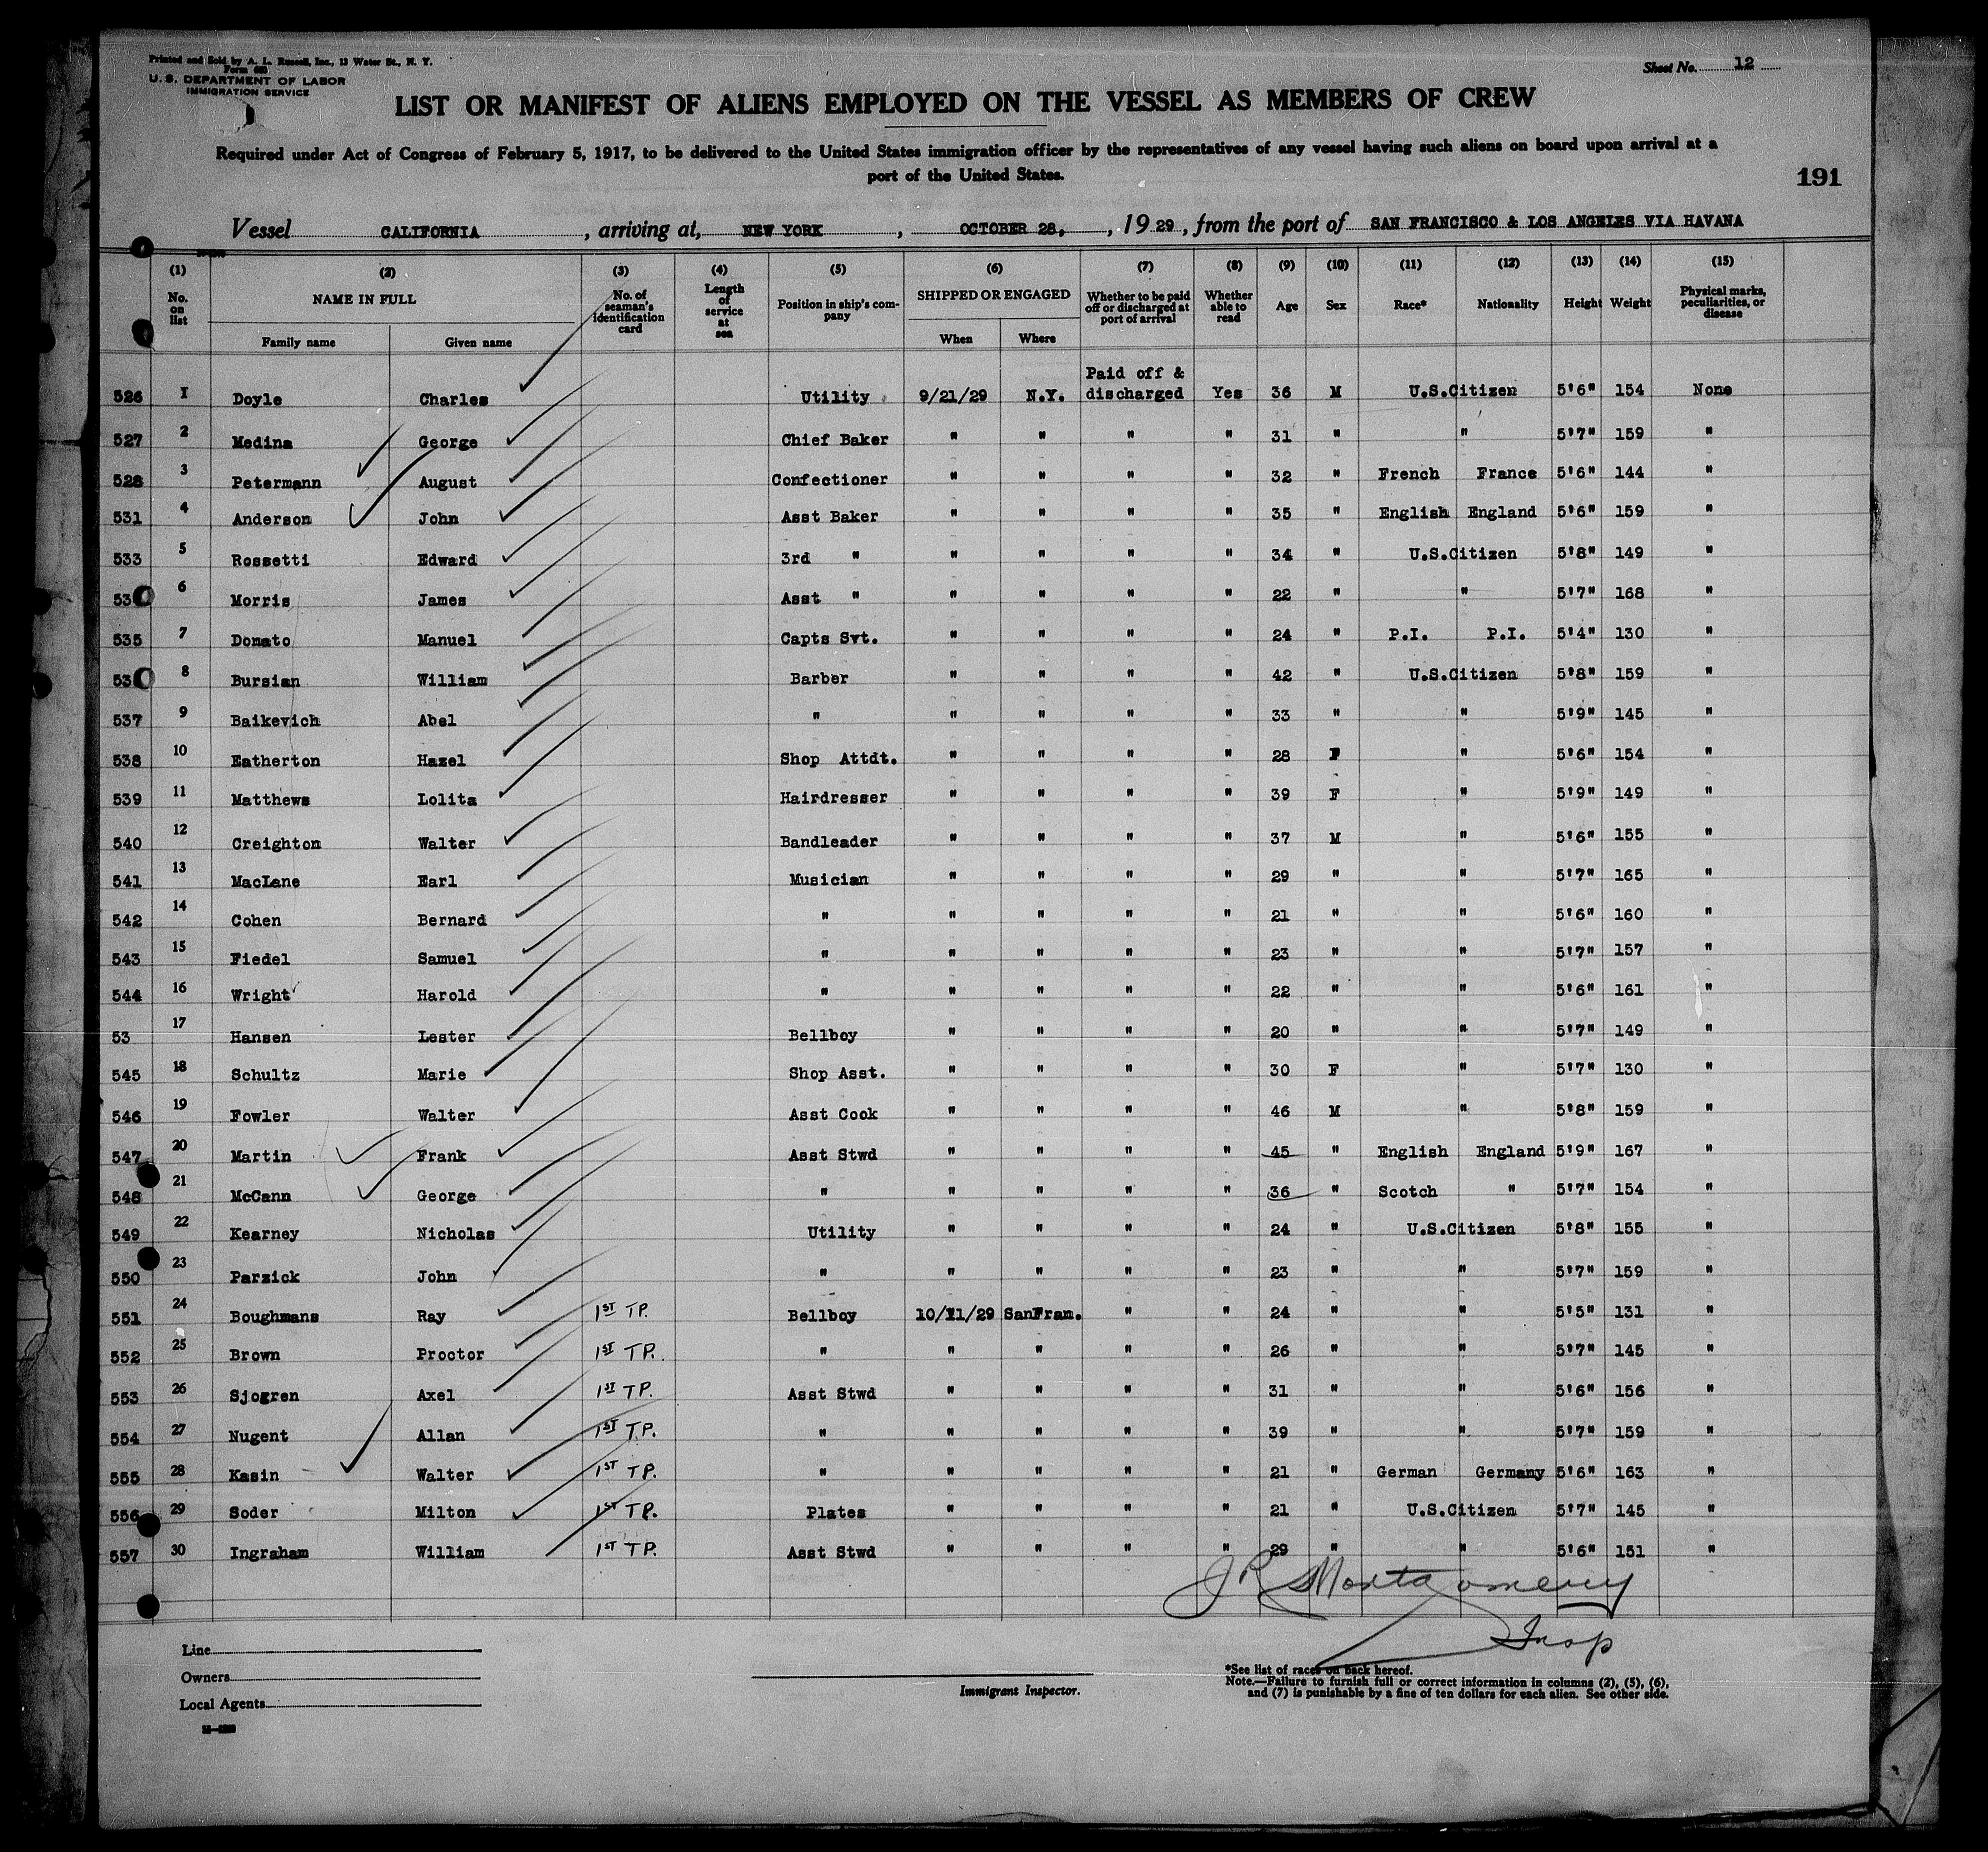 Printed and Sold by A. L. Russell, Inc., 13 Water St., N. Y.
Form 680
U. S. DEPARTMENT OF LABOR
IMMIGRATION SERVICE
Sheet No. 12
LIST OR MANIFEST OF ALIENS EMPLOYED ON THE VESSEL AS MEMBERS OF CREW
Required under Act of Congress of February 5, 1917, to be delivered to the United States immigration officer by the representatives of any vessel having such aliens on board upon arrival at a
port of the United States.
191
Vessel CALIFORNIA, arriving at, NEW YORK, OCTOBER 28, , 19 29, from the port of SAN FRANCISCO & LOS ANGELES VIA HAVANA
(1) (2) (3) (4) (5) (6) (7) (8) (9) (10) (11) (12) (13) (14) (15)
No. on list NAME IN FULL No. of seaman's identification card Length of service at sea Position in ship's company SHIPPED OR ENGAGED Whether to be paid off or discharged at port of arrival Whether able to read Age Sex Race* Nationality Height Weight Physical marks, peculiarities, or disease
Family name Given name When Where
526 1 Doyle Charles Utility 9/21/29 N.Y. Paid off & discharged Yes 36 M U.S.Citizen 5'6" 154 None
527 2 Medina George Chief Baker " " " " 31 " " 5'7" 159 "
528 3 Petermann August Confectioner " " " " 32 " French France 5'6" 144 "
531 4 Anderson John Asst Baker " " " " 35 " English England 5'6" 159 "
533 5 Rossetti Edward 3rd " " " " " 34 " U.S.Citizen 5'8" 149 "
53 6 Morris James Asst " " " " " 22 " " 5'7" 168 "
535 7 Donato Manuel Capts Svt. " " " " 24 " P.I. P.I. 5'4" 130 "
53 8 Bursian William Barber " " " " 42 " U.S.Citizen 5'8" 159 "
537 9 Baikevich Abel " " " " " 33 " " 5'9" 145 "
538 10 Eatherton Hazel Shop Attdt. " " " " 28 F " 5'6" 154 "
539 11 Matthews Lolita Hairdresser " " " " 39 F " 5'9" 149 "
540 12 Creighton Walter Bandleader " " " " 37 M " 5'6" 155 "
541 13 MacLane Earl Musician " " " " 29 " " 5'7" 165 "
542 14 Cohen Bernard " " " " " 21 " " 5'6" 160 "
543 15 Fiedel Samuel " " " " " 23 " " 5'7" 157 "
544 16 Wright Harold " " " " " 22 " " 5'6" 161 "
53 17 Hansen Lester Bellboy " " " " 20 " " 5'7" 149 "
545 18 Schultz Marie Shop Asst. " " " " 30 F " 5'7" 130 "
546 19 Fowler Walter Asst Cook " " " " 46 M " 5'8" 159 "
547 20 Martin Frank Asst Stwd " " " " 45 " English England 5'9" 167 "
548 21 McCann George " " " " " 36 " Scotch " 5'7" 154 "
549 22 Kearney Nicholas Utility " " " " 24 " U.S.Citizen 5'8" 155 "
550 23 Parzick John " " " " " 23 " " 5'7" 159 "
551 24 Boughmans Ray 1ST TP. Bellboy 10/11/29 SanFran. " " 24 " " 5'5" 131 "
552 25 Brown Proctor 1ST TP. " " " " " 26 " " 5'7" 145 "
553 26 Sjogren Axel 1ST TP. Asst Stwd " " " " 31 " " 5'6" 156 "
554 27 Nugent Allan 1ST T.P. " " " " " 39 " " 5'7" 159 "
555 28 Kasin Walter 1ST TP. " " " " " 21 " German Germany 5'6" 163 "
556 29 Soder Milton 1ST TP. Plates " " " " 21 " U.S.Citizen 5'7" 145 "
557 30 Ingraham William 1ST TP. Asst Stwd " " " " 29 " " 5'6" 151 "
J R Montgomery
Insp
Line
Owners
Local Agents
Immigrant Inspector.
*See list of races on back hereof.
Note.—Failure to furnish full or correct information in columns (2), (5), (6),
and (7) is punishable by a fine of ten dollars for each alien. See other side.